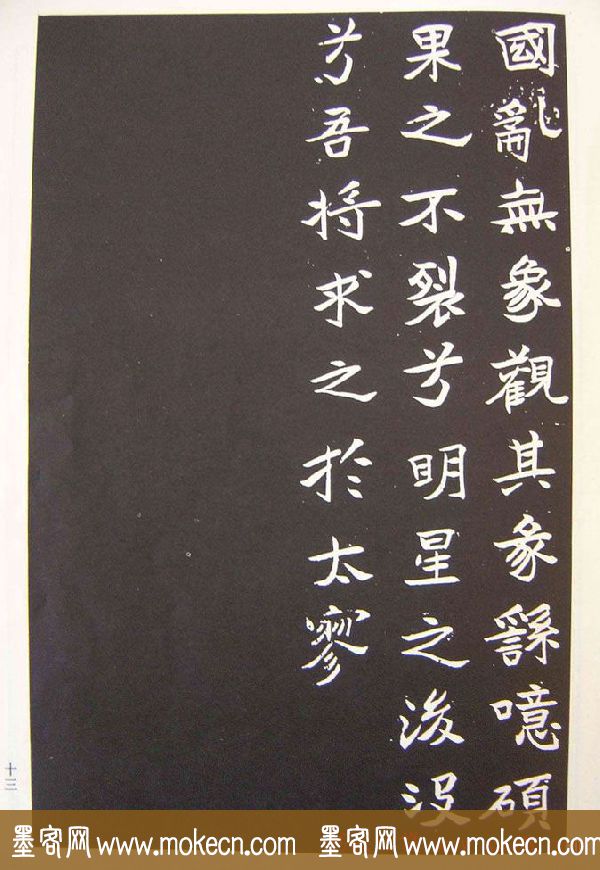 國亂無象觀其彖繇噫碩
果之不裂兮明星之浚没
兮吾将求之於太寥
十三
墨客网 www.mokecn.com 墨客网 www.mokecn.com